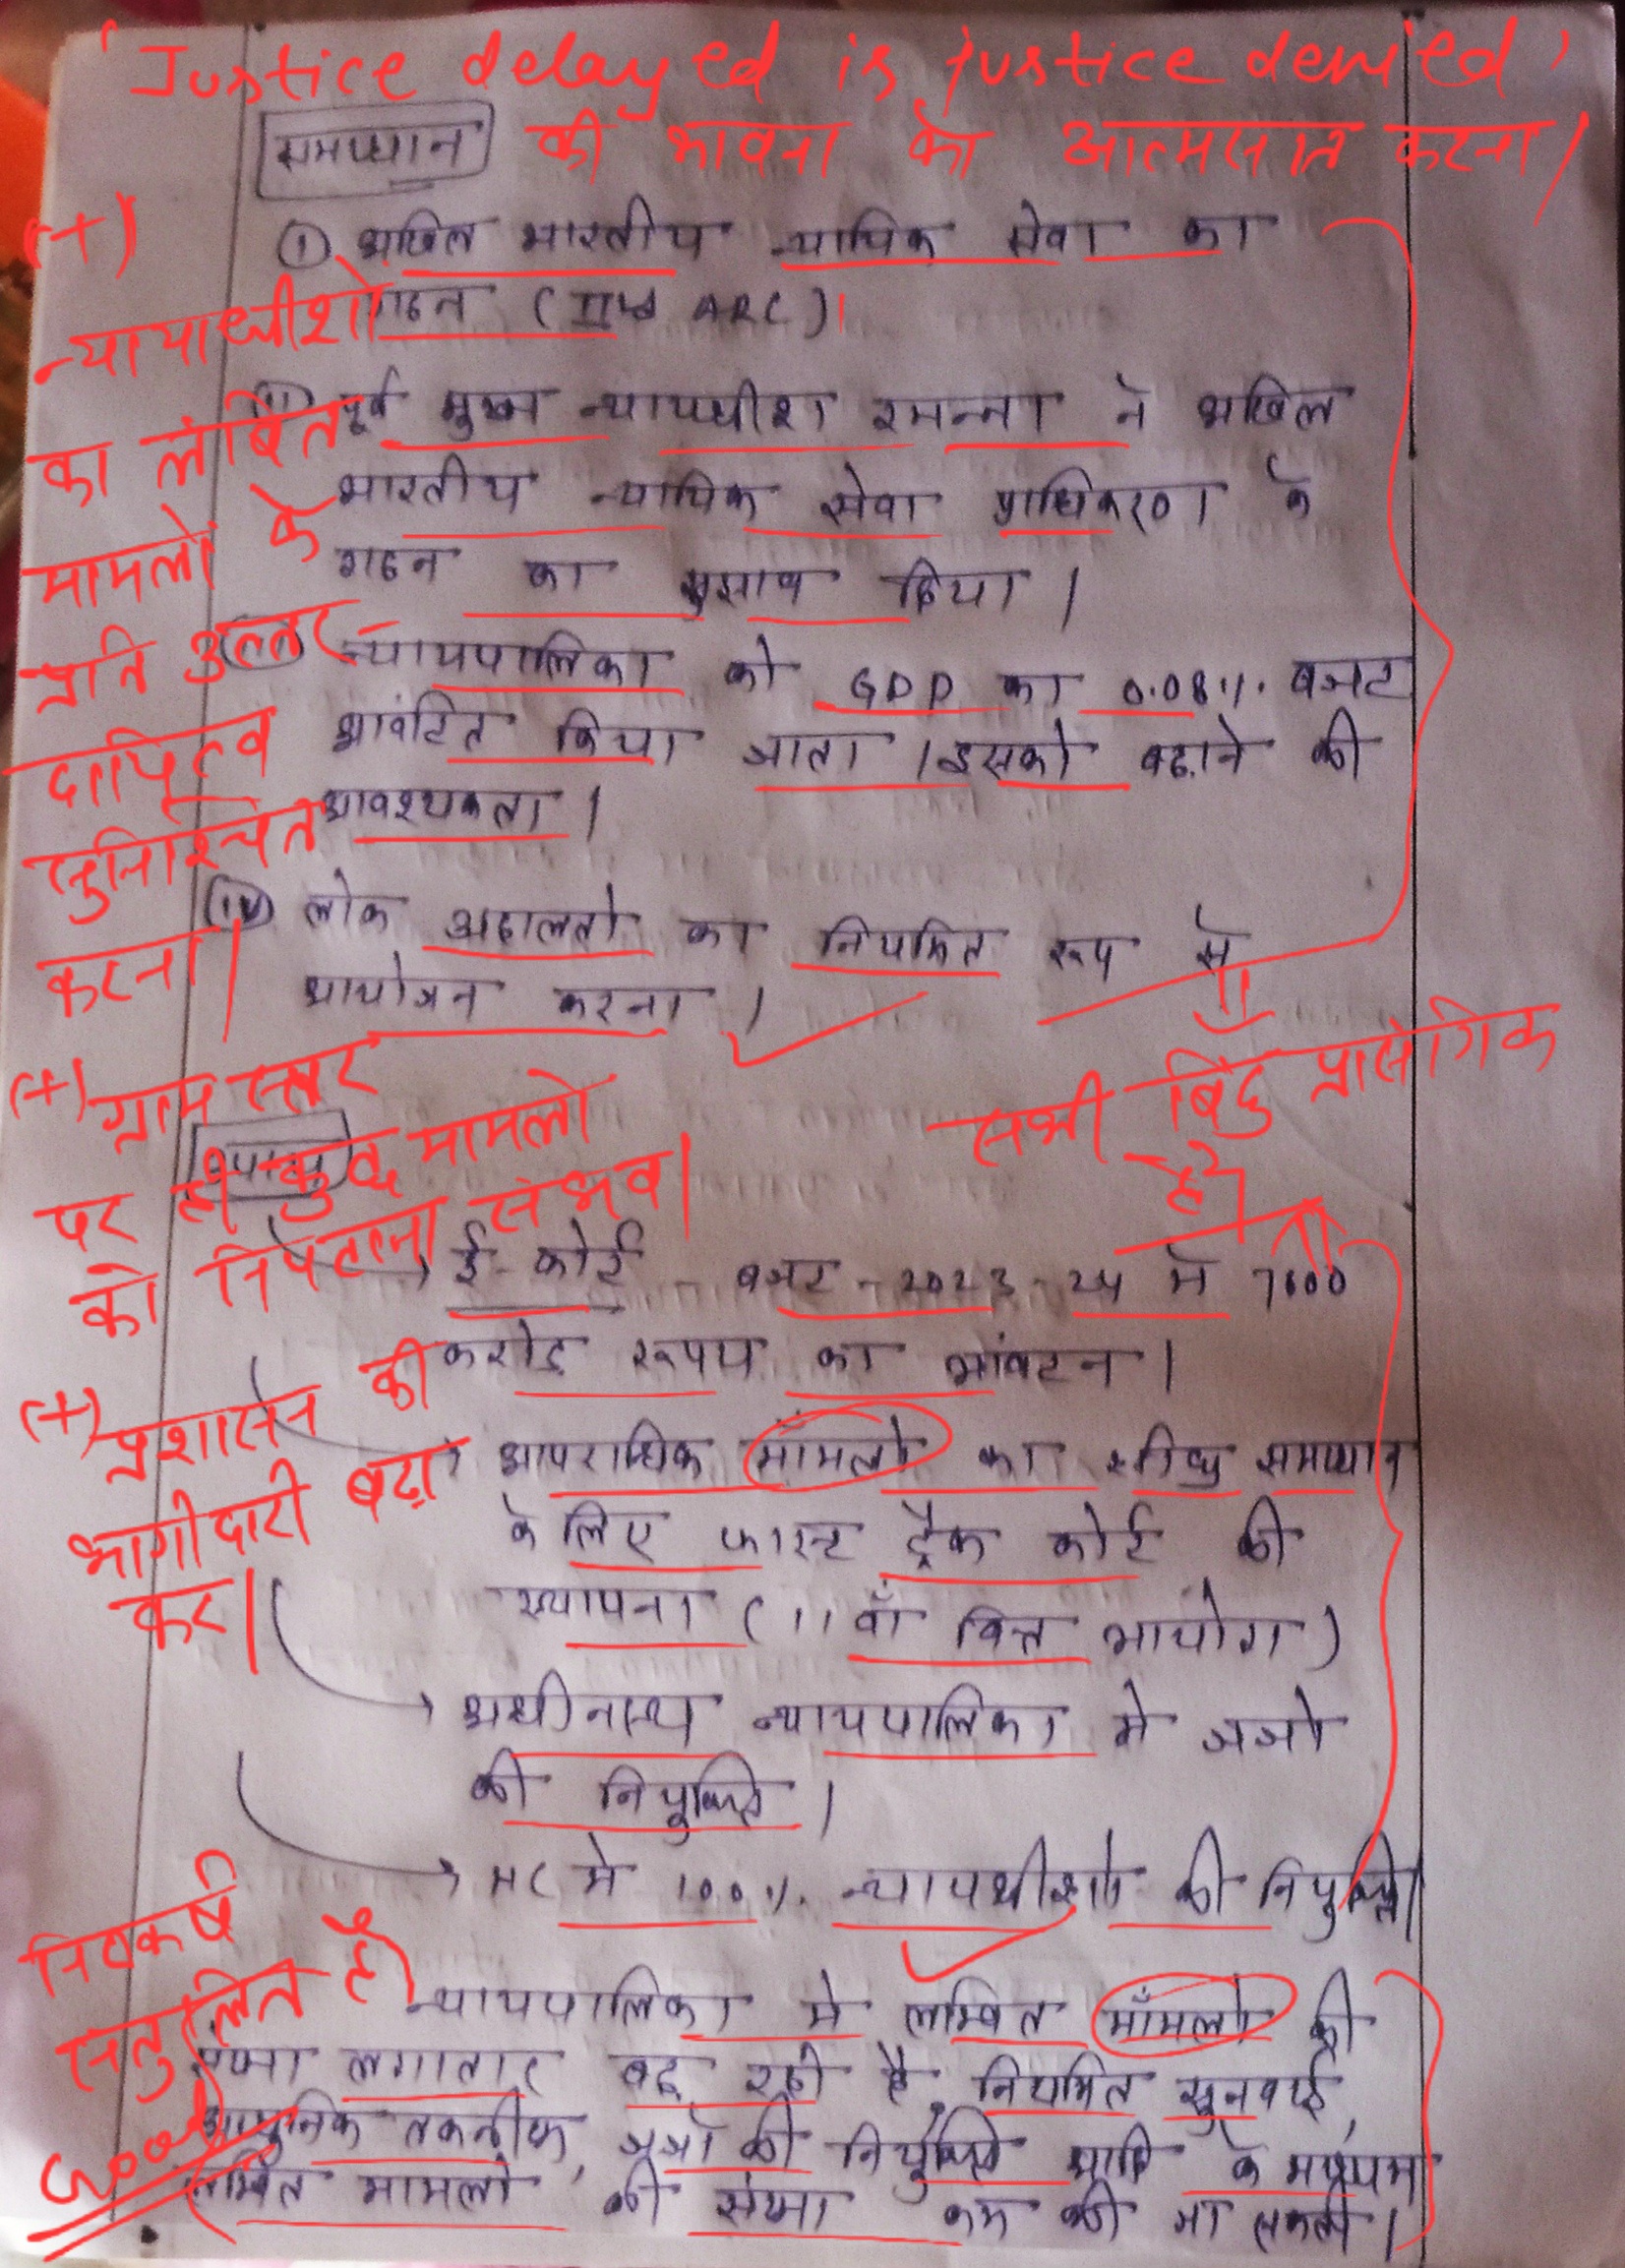 'Justice delayed is justice denied'
की भावना को आत्मसात करना।
समाधान
(+)
न्यायाधीशों
का लंबित
मामलों के
प्रति उत्तर-
दायित्व
सुनिश्चित
करना।
① अखिल भारतीय न्यायिक सेवा का
गठन (IInd ARC)।
(ii) पूर्व मुख्य न्यायधीश रमन्ना ने अखिल
भारतीय न्यायिक सेवा प्राधिकरण के
गठन का सुझाव दिया।
(iii) न्यायपालिका को GDP का 0.08%. बजट
आवंटित किया जाता। इसको बढ़ाने की
आवश्यकता।
(iv) लोक अदालतो का नियमित रूप से
आयोजन करना।
(+) ग्राम स्तर
पर ही कुछ मामलों
को निपटाना संभव।
सभी बिंदु प्रासंगिक
है।
(+) प्रशासन की
भागीदारी बढ़ा
कर।
→ ई-कोर्ट - बजट - 2023-24 में 7000
करोड़ रूपय का आंवटन।
→ आपराधिक माँमलो का शीघ्र समाधान
के लिए फास्ट ट्रैक कोर्ट की
स्थापना (11वाँ वित्त आयोग)
→ अधीनस्थ न्यायपालिका मे जजो
की नियुक्ति।
→ HC मे 100%. न्यायधीशो की नियुक्ति।
निष्कर्ष
संतुलित है।
Good
न्यायपालिका मे लम्बित माँमलो की
संख्या लगातार बढ़ रही है, नियमित सुनवाई,
आधुनिक तकनीक, जजों की नियुक्ति आदि के माध्यम
लम्बित मामलो की संख्या कम की जा सकती।